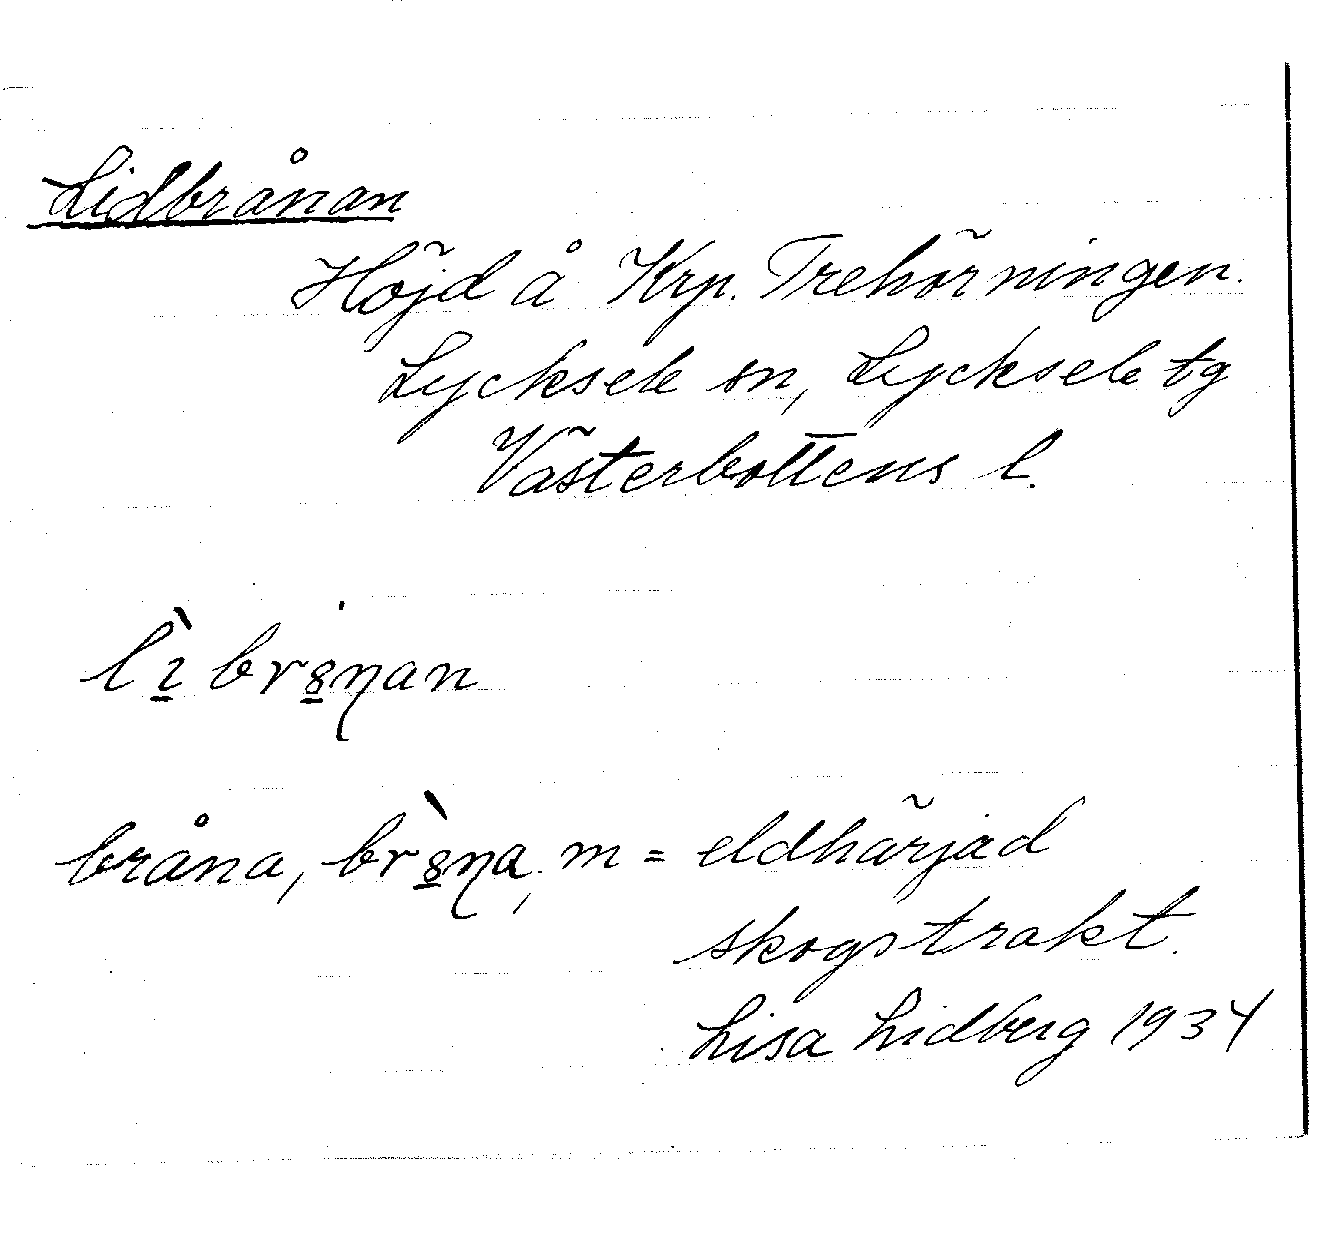 Lidbrånan
Höjd å Krp. Trehörningen.
Lycksele sn, Lycksele tg
Västerbottens l.
lì̱ br8̱ŋan
bråna, br8̱̀ŋa, m = eldhärjad
skogstrakt.
Lisa Lidberg 1934